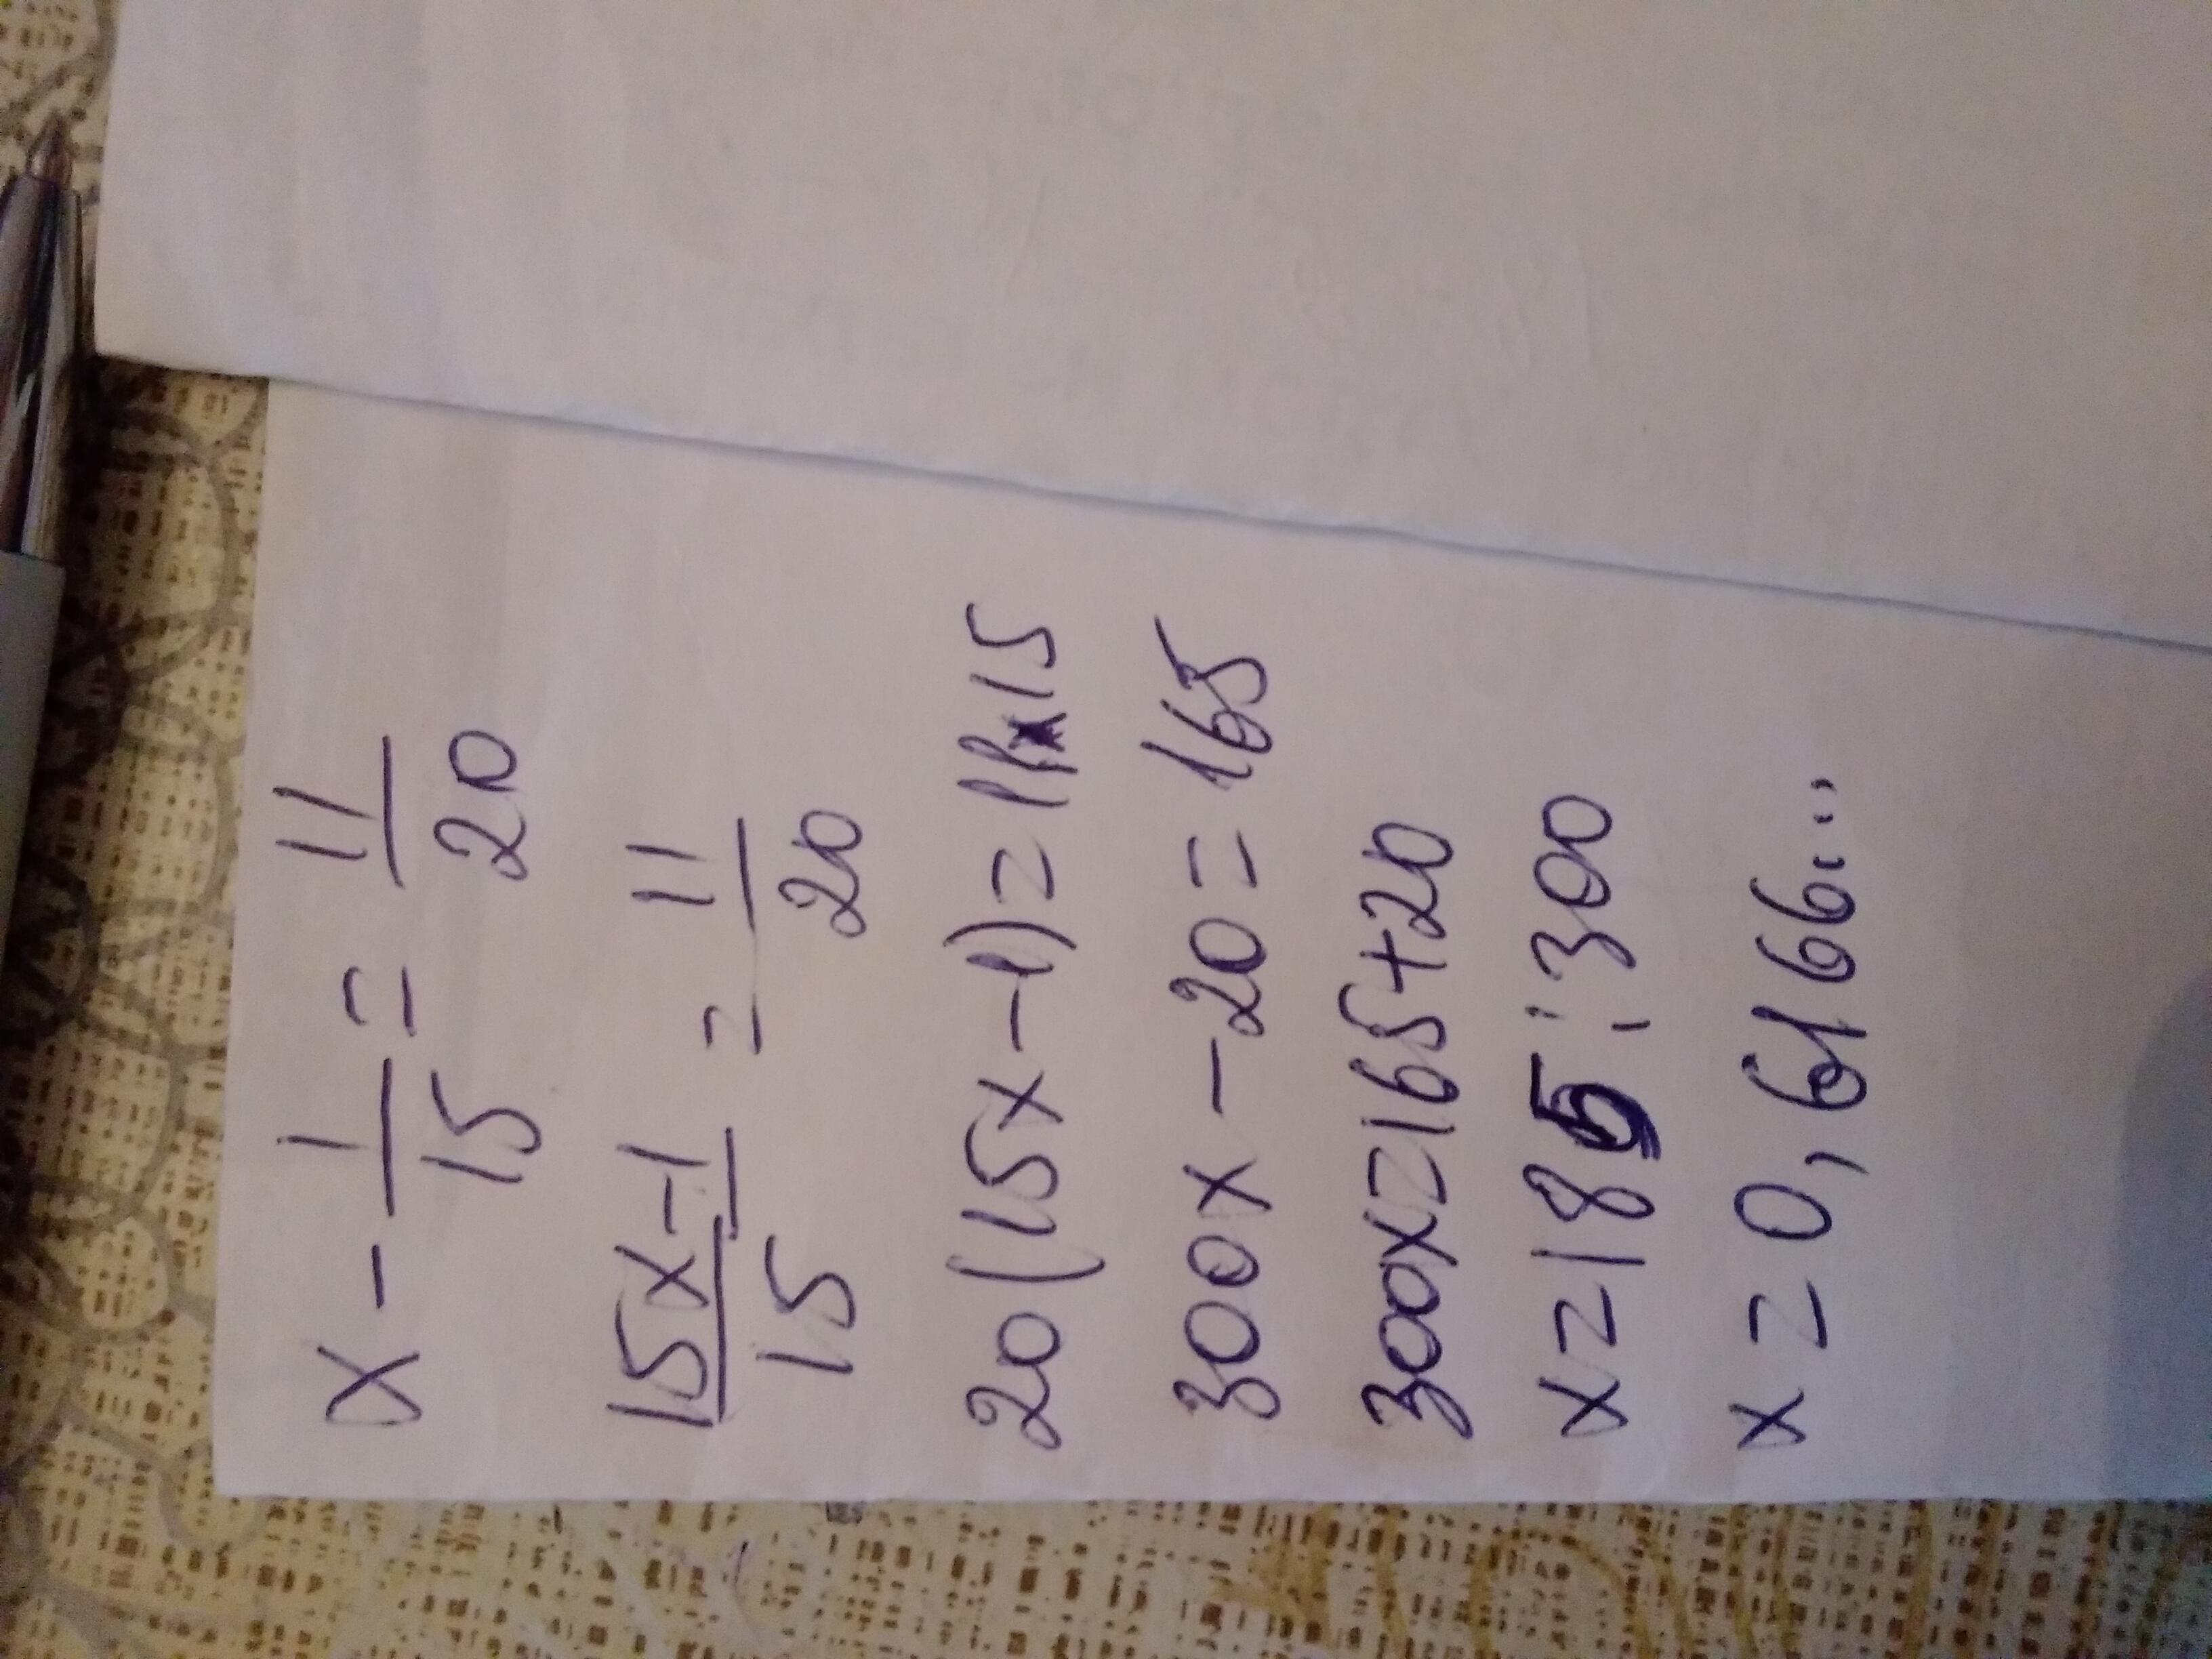 x - 1/15 = 11/20
15x-1/15 = 11/20
20(15x-1)=11x15
300x-20=165
300x=165+20
x=185:300
x=0,6166...